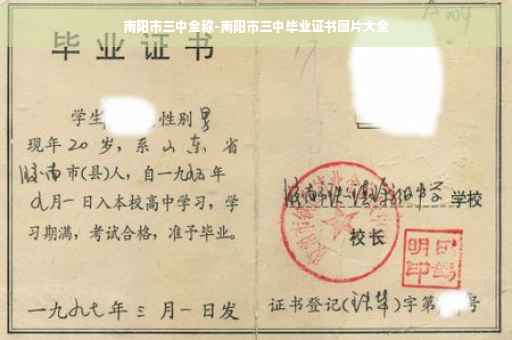 南阳市三中全称-南阳市三中毕业证书图片大全
毕业证书
学生 性别男
现年20岁，系山东省
济南市(县)人，自一九九五年
九月一日入本校高中学习，学
习期满，考试合格，准予毕业。
一九九七年三月一日发
学校
校长
明印
证书登记( )字第 号